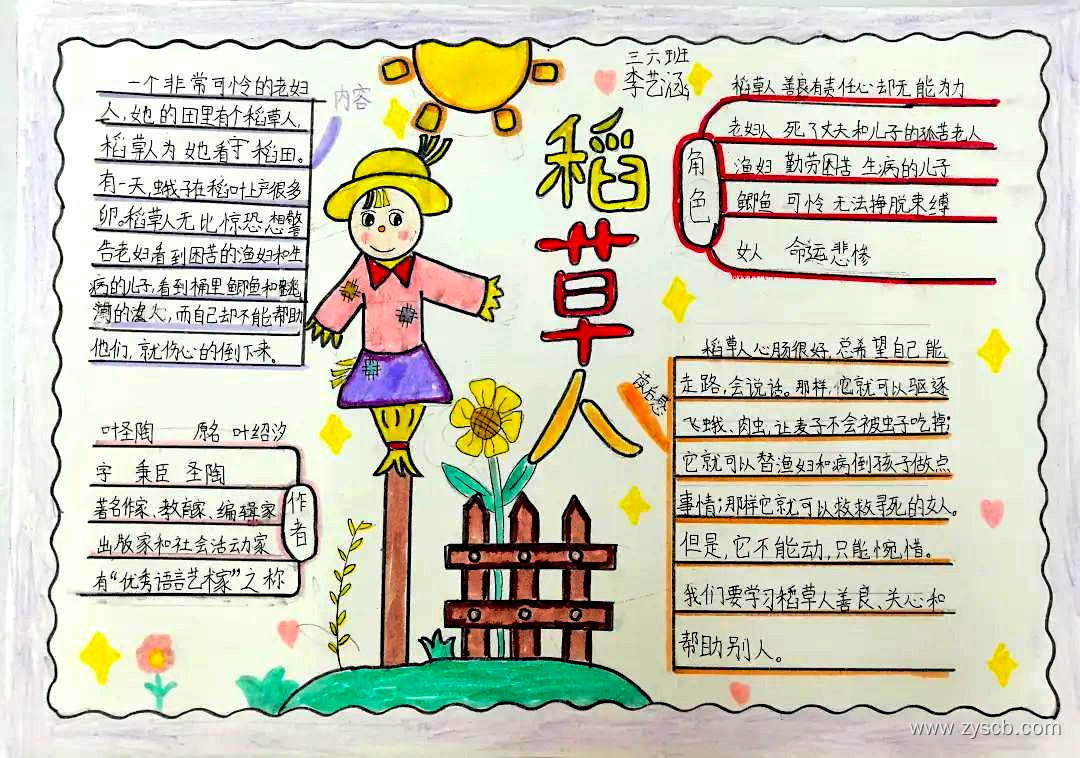 三六班
李艺涵
稻草人
内容
一个非常可怜的老妇
人,她的田里有个稻草人,
稻草人为她看守稻田。
有一天,蛾子在稻叶上产很多
卵。稻草人无比惊恐想警
告老妇看到困苦的渔妇和生
病的儿子看到桶里鲫鱼和跳
河的女人,而自己却不能帮助
他们,就伤心的倒下来。
作者
叶圣陶 原名 叶绍
字 秉臣 圣陶
著名作家、教育家、编辑家
出版家和社会活动家
有“优秀语言艺术家”之称
角色
稻草人 善良有责任心却无能为力
老妇人 死了丈夫和儿子的孤苦老人
渔妇 勤劳困苦 生病的儿子
鲫鱼 可怜 无法挣脱束缚
女人 命运悲惨
读后感
稻草人心肠很好,总希望自己能,
走路,会说话。那样,它就可以驱逐
飞蛾、肉虫,让麦子不会被虫子吃掉;
它就可以替渔妇和病倒孩子做点
事情;那样它就可以救救寻死的女人。
但是,它不能动,只能惋惜。
我们要学习稻草人善良、关心和
帮助别人。
www.zyscb.com